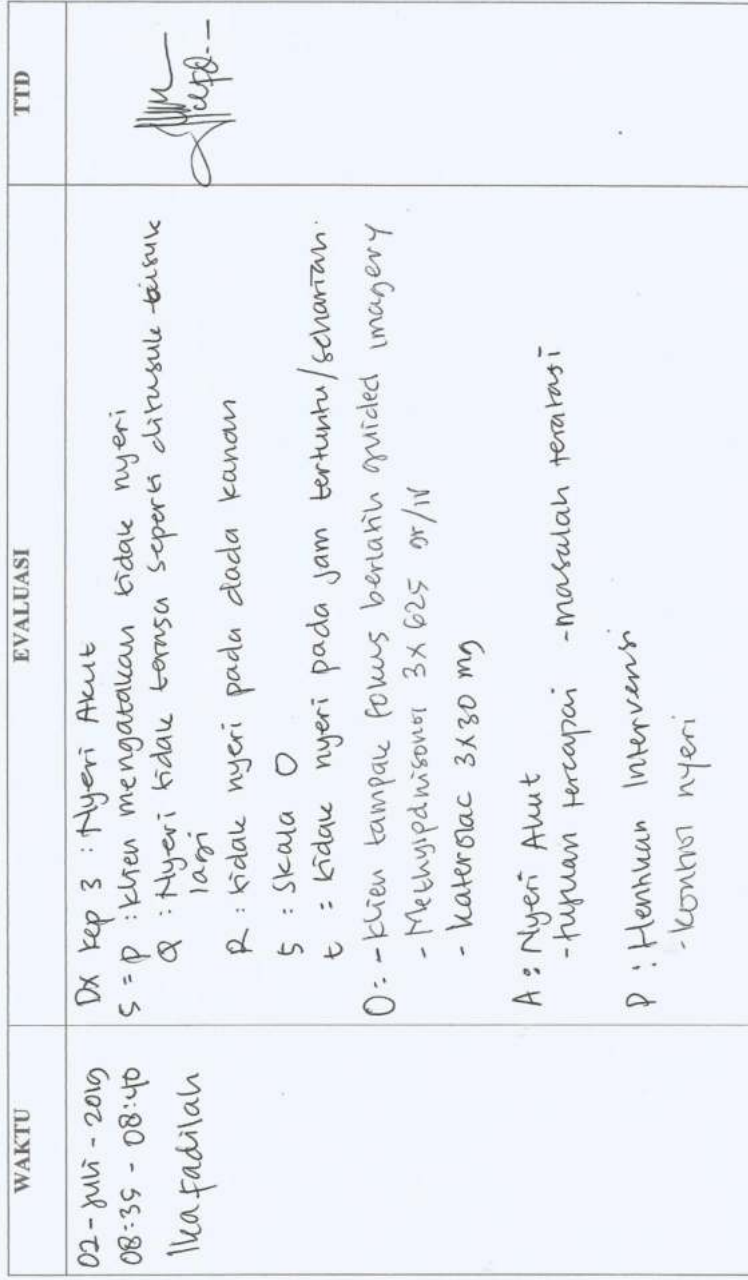 WAKTU
EVALUASI
TTD
02-Juli-2019
08:35 - 08:40
Ika Fadilah
Dx kep 3 : Nyeri Akut
S = P : klien mengatakan tidak nyeri
Q : Nyeri tidak terasa seperti ditusuk-tusuk
lagi
R : tidak nyeri pada dada kanan
S : Skala 0
t : tidak nyeri pada jam tertuntu/seharian.
O : - klien tampak fokus berlatih guided imagery
- Methylpdnisonol 3x625 gr/IV
- Katerolac 3x30 mg
A : Nyeri Akut
- tujuan tercapai - masalah teratasi
P : Hentikan Intervensi
- kontrol nyeri